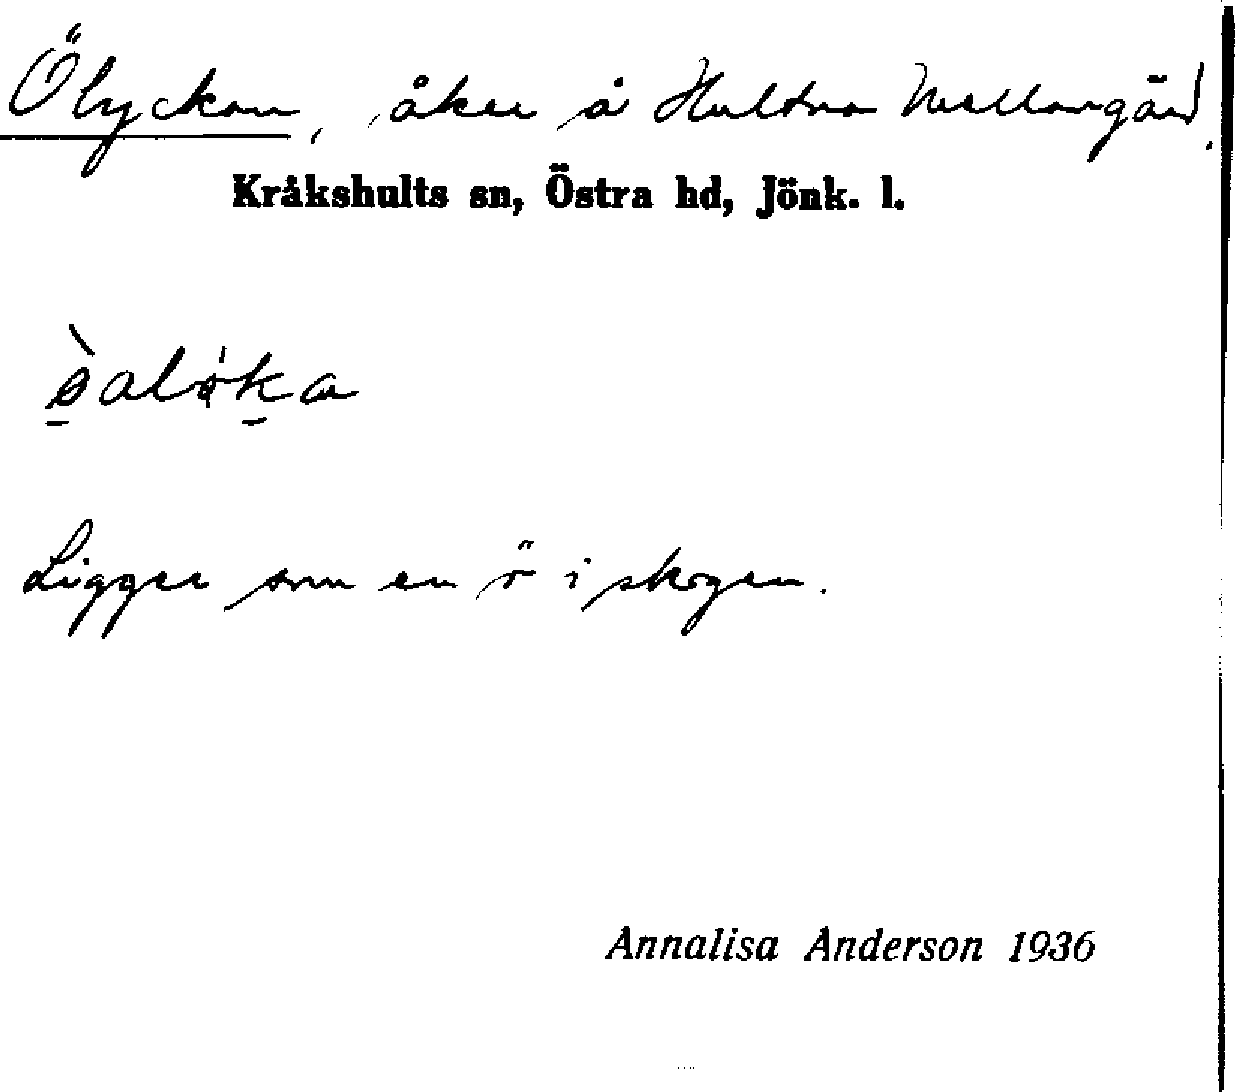 Ölyckan, åker å Hultna Mellangård.
Kråkshults sn, Östra hd, Jönk. l.
Ligger som en ö i skogen.
Annalisa Anderson 1936